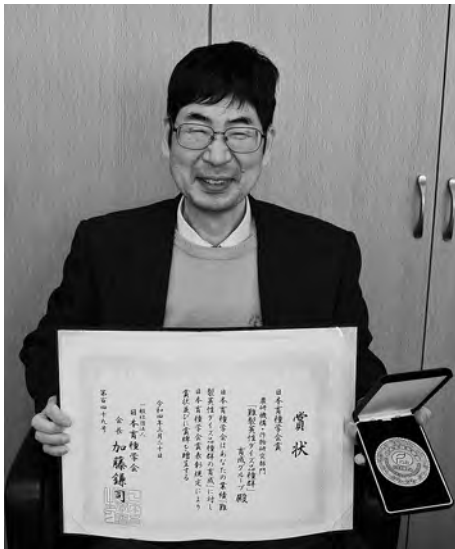 賞状
日本育種学会賞
農研機構・作物研究部門
「難裂莢性ダイズ品種群」
育成グループ 殿
日本育種学会はあなたの業績「難
裂莢性ダイズ品種群の育成」に対し
日本育種学会賞表彰規定により
賞状並びに賞牌を贈呈する
令和四年三月二十日
一般社団法人
日本育種学会
会長 加藤鎌司
第百四十九号